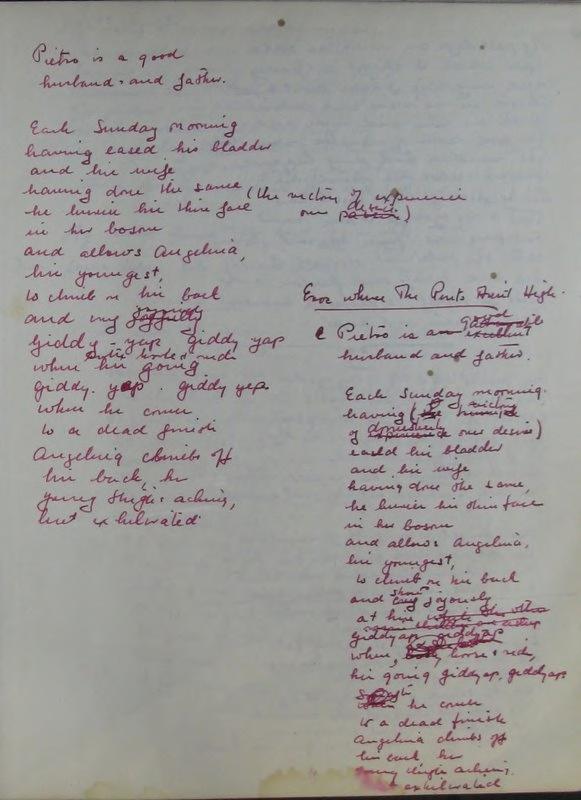 Pietro is a good
husband and father.
Each Sunday morning
having eased his bladder
and his wife
having done the same (the victory of experience
over desire)
he buries his thin face
in her bosom
and allows Angelina,
his youngest,
to climb on his back
and
giddy-yap giddy yap
when his going
giddy-yap. giddy yap
when he comes
to a dead finish
Angelina climbs off
his back, her
young thighs aching,
but exhilarated
where The Ports Aren't High.
Pietro is a good
husband and father.
Each Sunday morning.
having (victory
of over desire)
eased his bladder
and his wife
having done the same,
he buries his thin face
in her bosom
and allows Angelina,
his youngest,
to climb on his back
and joyously
at him
giddyap, giddyap
when, horse & red,
his going giddyap, giddyap
he comes
to a dead finish
Angelina climbs off
his back her
young thighs aching,
exhilarated